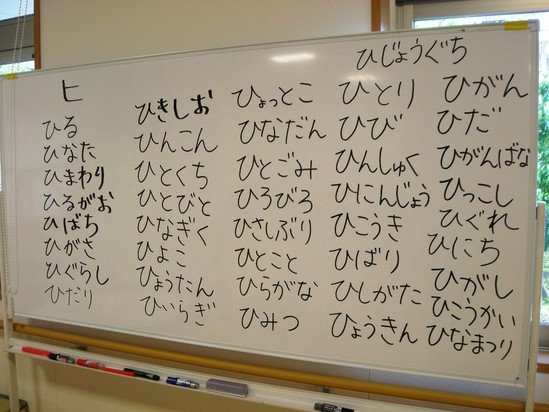 ヒ
ひる
ひなた
ひまわり
ひるがお
ひばち
ひがさ
ひぐらし
ひだり
ひきしお
ひんこん
ひとくち
ひとびと
ひなぎく
ひよこ
ひょうたん
ひいらぎ
ひょっとこ
ひなだん
ひとごみ
ひろびろ
ひさしぶり
ひとこと
ひらがな
ひみつ
ひじょうぐち
ひとり
ひび
ひんしゅく
ひにんじょう
ひこうき
ひばり
ひしがた
ひょうきん
ひがん
ひだ
ひがんばな
ひっこし
ひぐれ
ひにち
ひがし
ひこうかい
ひなまつり